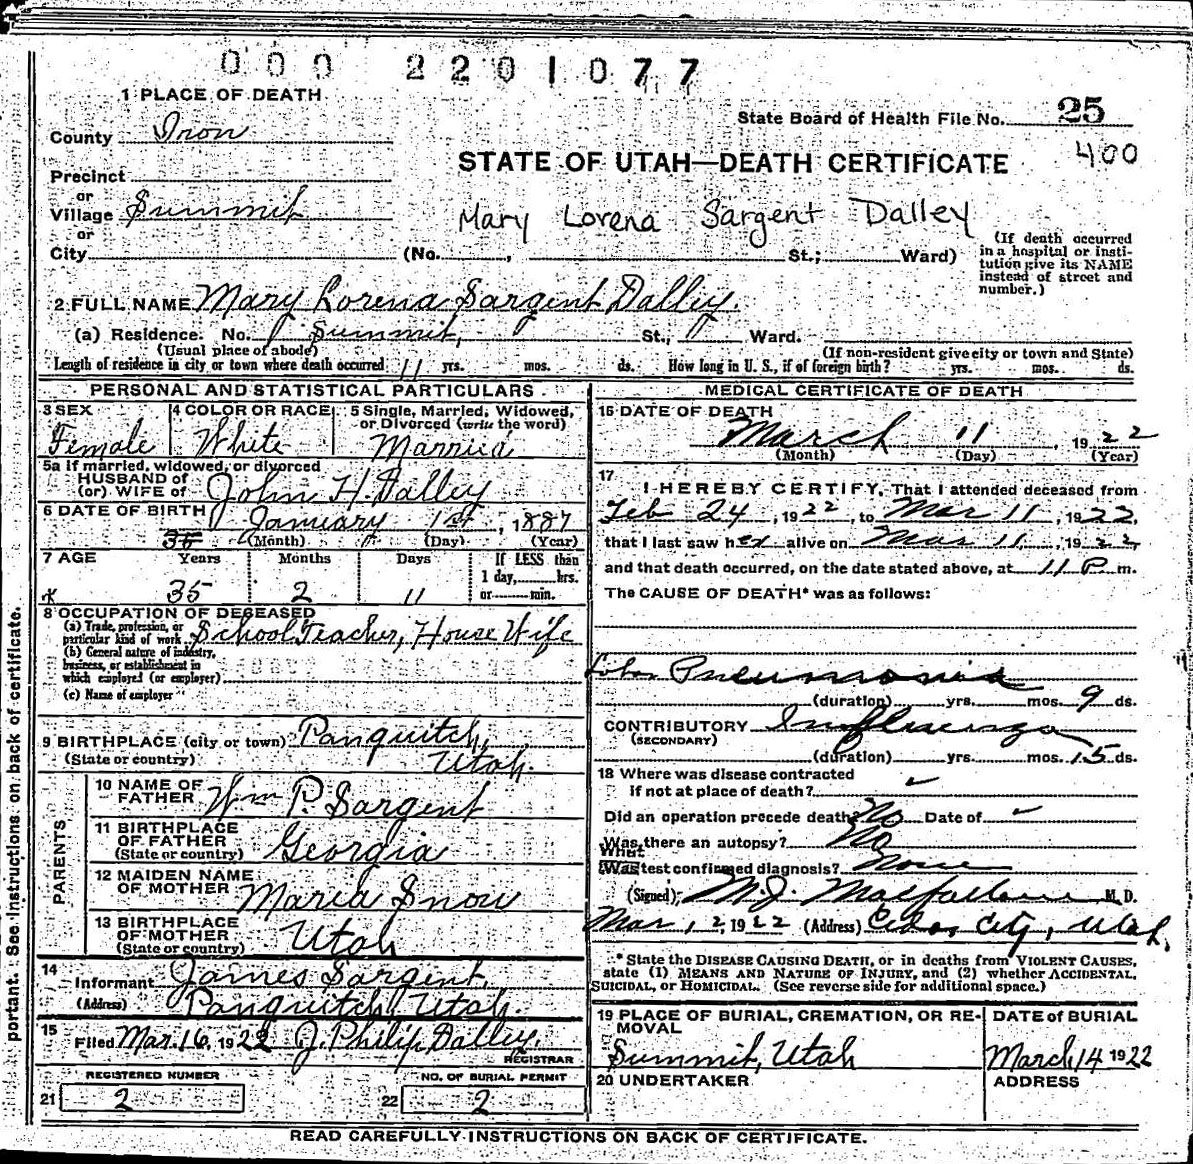 000 2201077
1 PLACE OF DEATH
County Iron
State Board of Health File No. 25
400
STATE OF UTAH—DEATH CERTIFICATE
Precinct
or
Village Summit
or
Mary Lorena Sargent Dalley
City (No. , St.; Ward)
(If death occurred in a hospital or institution give its NAME instead of street and number.)
2 FULL NAME Mary Lorena Sargent Dalley.
(a) Residence. No. Summit, St., Ward.
(Usual place of abode) (If non-resident give city or town and State)
Length of residence in city or town where death occurred 11 yrs. mos. ds. How long in U. S., if of foreign birth? yrs. mos. ds.
PERSONAL AND STATISTICAL PARTICULARS
3 SEX 4 COLOR OR RACE 5 Single, Married, Widowed, or Divorced (write the word)
Female White Married
5a If married, widowed, or divorced
HUSBAND of
(or) WIFE of John H. Dalley
6 DATE OF BIRTH January 1st, 1887
35 (Month) (Day) (Year)
7 AGE Years Months Days If LESS than
1 day, hrs.
or min.
35 2 11
8 OCCUPATION OF DECEASED
(a) Trade, profession, or
particular kind of work School Teacher, House Wife
(b) General nature of industry,
business, or establishment in
which employed (or employer)
(c) Name of employer
9 BIRTHPLACE (city or town) Panguitch,
(State or country) Utah.
PARENTS
10 NAME OF
FATHER Wm P. Sargent
11 BIRTHPLACE
OF FATHER
(State or country) Georgia
12 MAIDEN NAME
OF MOTHER Maria Snow
13 BIRTHPLACE
OF MOTHER
(State or country) Utah
14
Informant James Sargent,
(Address) Panguitch Utah.
15
Filed Mar. 16, 1922 J. Philip Dalley.
REGISTRAR
REGISTERED NUMBER NO. OF BURIAL PERMIT
21 2 22 2
MEDICAL CERTIFICATE OF DEATH
16 DATE OF DEATH
March 11, 1922
(Month) (Day) (Year)
17
I HEREBY CERTIFY, That I attended deceased from
Feb 24, 1922, to Mar 11, 1922,
that I last saw her alive on Mar 11, 1922,
and that death occurred, on the date stated above, at 11 P m.
The CAUSE OF DEATH* was as follows:
Lobar Pneumonia
(duration) yrs. mos. 9 ds.
CONTRIBUTORY Influenza
(SECONDARY)
(duration) yrs. mos. 15 ds.
18 Where was disease contracted
if not at place of death?
Did an operation precede death? No Date of
Was there an autopsy? No
What
Was test confirmed diagnosis? None
(Signed) M. J. Macfarlane M. D.
Mar 12, 1922 (Address) Cedar City, Utah.
* State the DISEASE CAUSING DEATH, or in deaths from VIOLENT CAUSES,
state (1) MEANS AND NATURE OF INJURY, and (2) whether ACCIDENTAL,
SUICIDAL, or HOMICIDAL. (See reverse side for additional space.)
19 PLACE OF BURIAL, CREMATION, OR REMOVAL DATE of BURIAL
Summit, Utah March 14 1922
20 UNDERTAKER ADDRESS
READ CAREFULLY INSTRUCTIONS ON BACK OF CERTIFICATE.
portant. See instructions on back of certificate.